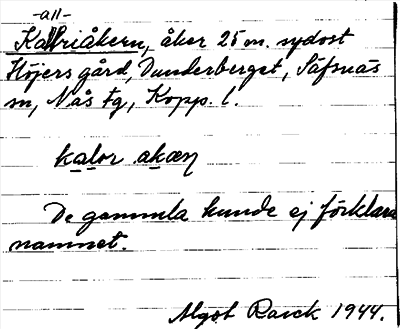 -all-
Kallriåkern, åker 25 m. sydost
Höjers gård, Dunderberget, Säfsnäs
sn, Nås tg, Kopp. l.
kalor akæn
De gammla kunde ej förklara
namnet.
Algot Rarck 1944.